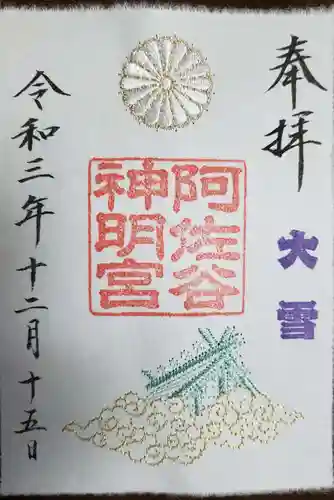 奉拝
大雪
阿佐谷
神明宮
令和三年十二月十五日